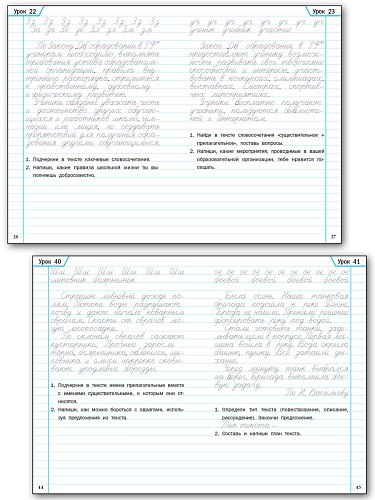 Урок 22
Зз Зз Зз Зз Зз Зз Зз Зз
По Закону "Об образовании в РФ"
ученикам необходимо выполнять
требования устава образователь-
ной организации, правила вну-
треннего распорядка, стремиться
к нравственному, духовному
и физическому развитию.
Ученики обязаны уважать честь
и достоинство других обучаю-
щихся и работников школы, гим-
назии или лицея, не создавать
препятствий для получения обра-
зования другими обучающимися.
1. Подчеркни в тексте ключевые словосочетания.
2. Напиши, какие правила школьной жизни ты вы-
полняешь добросовестно.
26
Урок 23
уч уч уч уч уч уч уч уч
ученик учебник участие
Закон "Об образовании в РФ"
предоставляет ученику возмож-
ность развивать свои творческие
способности и интересы, участ-
вовать в конкурсах, олимпиадах,
выставках, смотрах, спортив-
ных мероприятиях.
Ученики бесплатно получают
учебники, пользуются библиоте-
кой и Интернетом.
1. Найди в тексте словосочетания «существительное +
прилагательное», поставь вопросы.
2. Напиши, какие мероприятия, проводимые в вашей
образовательной организации, тебе нравится по-
сещать.
27
Урок 40
Ши Ши Ши Ши Ши Ши Ши
шиповник боярышник
Страшен ливневый дождь по-
лям. Потоки воды размывают
почву и дают начало коварным
оврагам. Спасти от оврагов мо-
гут лесопосадки.
По склонам оврагов сажают
кустарники. Прочные заросли
тёрна, боярышника, облепихи, ши-
повника и ольхи накрепко сковы-
вают уродливые борозды.
1. Подчеркни в тексте имена прилагательные вместе
с именами существительными, к которым они от-
носятся.
2. Напиши, как можно бороться с оврагами, исполь-
зуя предложения из текста.
44
Урок 41
ое ое ое ое ое ое ое ое ое
боевой боевой боевой боевой
Была осень. Наша танковая
бригада подошла к реке Десне.
Брода не нашли. Приняли решение
форсировать реку под водой.
Стали готовить танки, заде-
лывать щели в корпусе. Первая ма-
шина вошла в реку. Вода скрыла
башню, пушку. Все затаили ды-
хание.
Через минуту танк выбрался
на берег. Бригада выполнила бое-
вую задачу.
По Н. Васильеву
1. Определи тип текста (повествование, описание,
рассуждение). Закончи предложение.
Тип текста —
2. Составь и напиши план текста.
45